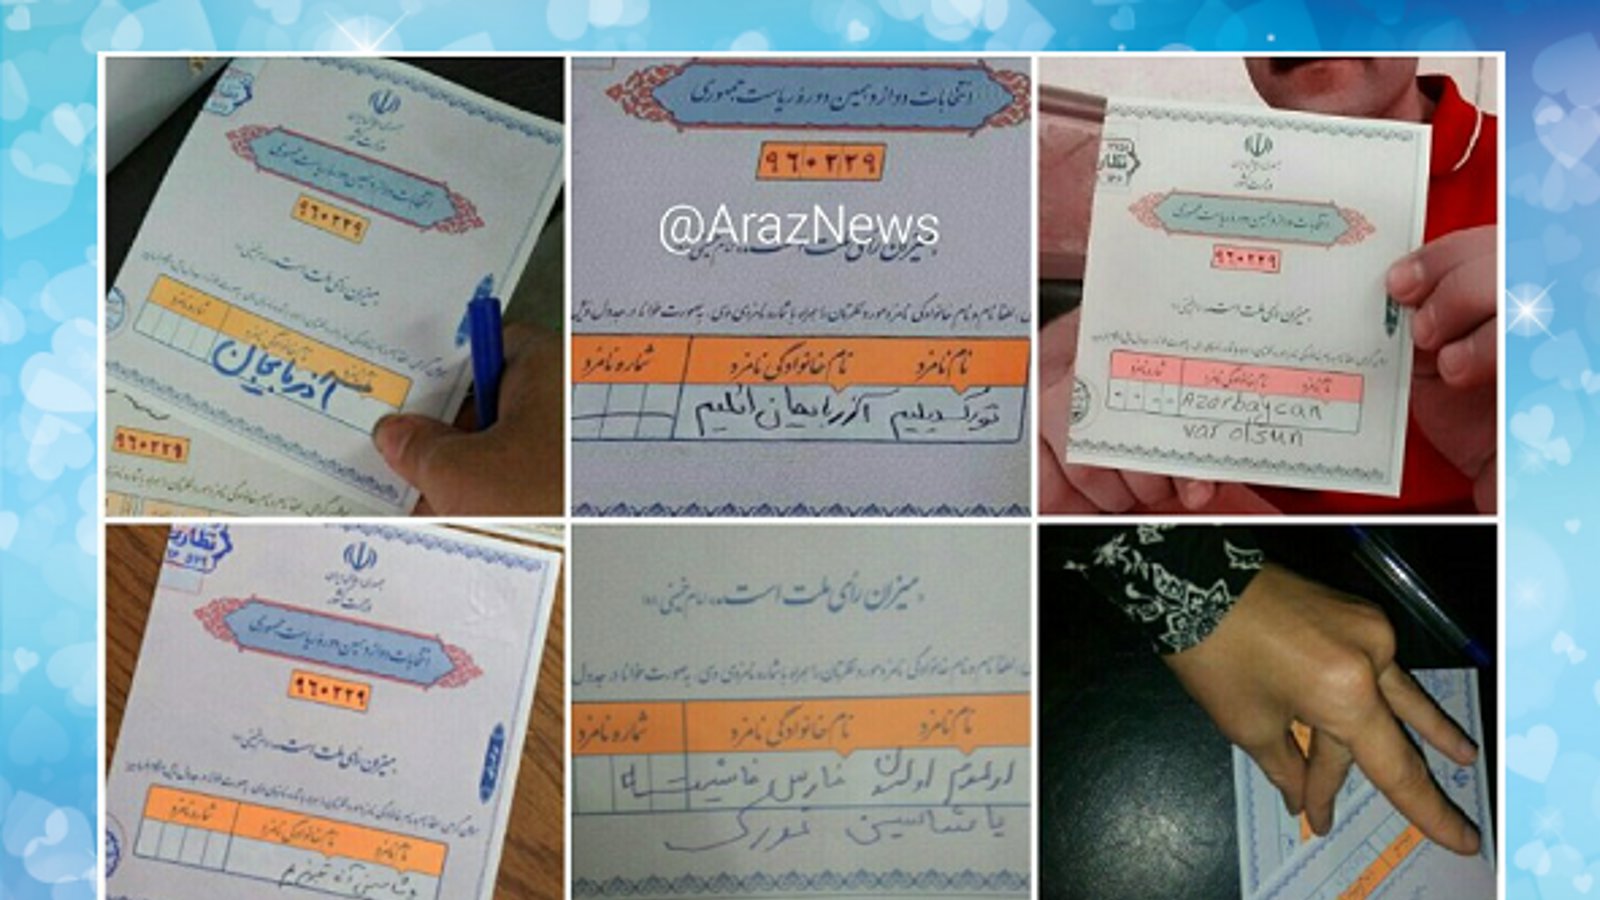 جمهوری اسلامی ایران
وزارت کشور
انتخابات دوازدهمین دوره ریاست جمهوری
۹۶۰۲۲۹
میزان رأی ملت است. امام خمینی (ره)
شماره نامزد
نام خانوادگی نامزد
نام نامزد
آذربایجان
۹۶۰۲۲۹
انتخابات دوازدهمین دوره ریاست جمهوری
۹۶۰۲۲۹
@ArazNews
میزان رأی ملت است. امام خمینی (ره)
لطفا نام و نام خانوادگی نامزد مورد نظرتان را همراه با شماره نامزدی وی، به صورت خوانا در جدول ذیل
نام نامزد نام خانوادگی نامزد شماره نامزد
تورک دیلیم آذربایجان ائلیم
جمهوری اسلامی ایران
وزارت کشور
انتخابات دوازدهمین دوره ریاست جمهوری
۹۶۰۲۲۹
میزان رأی ملت است. امام خمینی (ره)
نام نامزد نام خانوادگی نامزد شماره نامزد
Azərbaycan
var olsun
نظارت
جمهوری اسلامی ایران
وزارت کشور
انتخابات دوازدهمین دوره ریاست جمهوری
۹۶۰۲۲۹
میزان رأی ملت است. امام خمینی (ره)
نام نامزد نام خانوادگی نامزد شماره نامزد
میزان رأی ملت است. امام خمینی (ره)
لطفا نام و نام خانوادگی نامزد مورد نظرتان را همراه با شماره نامزدی وی، به صورت خوانا در جدول
نام نامزد نام خانوادگی نامزد شماره نامزد
اولوم اولسون فارس فاشیست
یاشاسین تورک